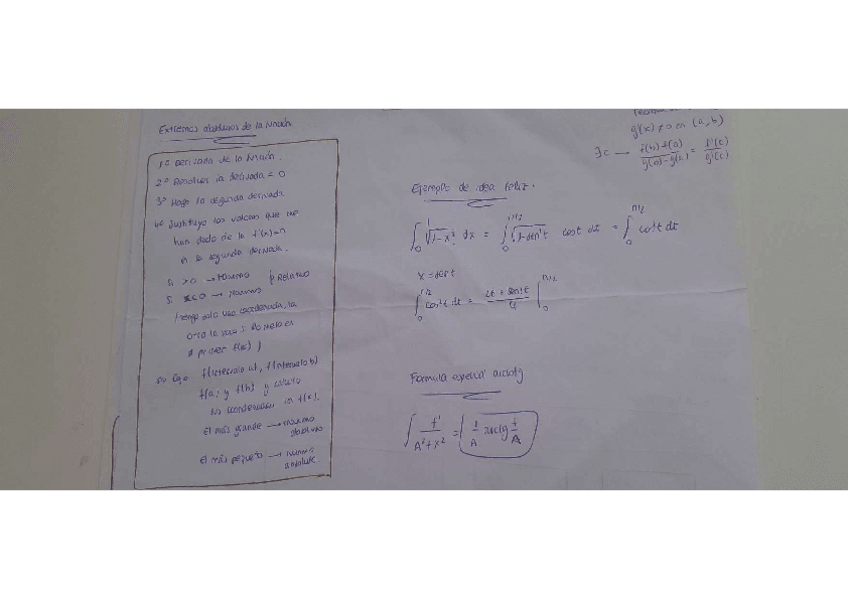 Extremos absolutos de la función
1º Derivada de la función.
2º Resolver la derivada = 0
3º Hago la segunda derivada
4º Sustituyo los valores que me
han dado de la f'(x)=0
en la segunda derivada.
Si >0 →
Si <0 → Relativo
(tengo solo una coordenada, la
otra la saco si lo meto en
f(x))
f(intervalo a), f(intervalo b)
f(a) y f(b) y calculo
coordenadas en f(x).
El más grande → Máximo
absoluto
El más pequeño → Mínimo
absoluto
g'(x) ≠ 0 en (a, b)
∃c — f(b)-f(a) / g(b)-g(a) = f'(c) / g'(c)
Ejemplo de idea feliz.
∫₀¹ √1-x² dx = ∫₀^π/2 √1-sen²t cost dt = ∫₀^π/2 cos²t dt
x = sent
∫₀^π/2 cos²t dt = 2t + sen2t / 4 |₀^π/2
Formula especial arctg
∫ f' / A²+x² = 1/A arctg f/A